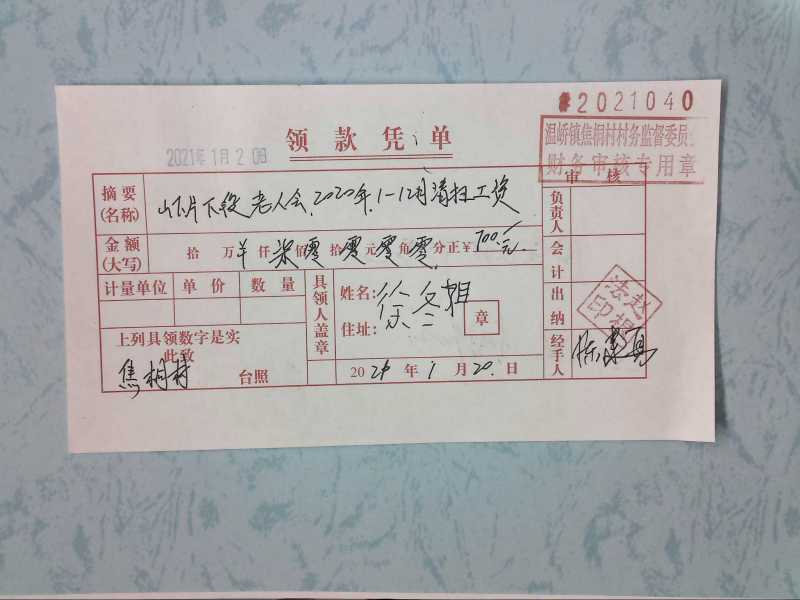 2021040
温峤镇焦桐村村务监督委员
财务审核专用章
2021年1月20日
领款凭单
摘要(名称) 片下段老人会、2020年,1-12月清扫工资
审核
金额(大写) 拾万¥仟柒佰零拾零元零角零分正¥700.元
负责人
会计
计量单位 单价 数量
具领人盖章
姓名:徐冬
住址:
章
出纳
上列具领数字是实
此致
焦桐村 台照
2021年1月20.日
经手人